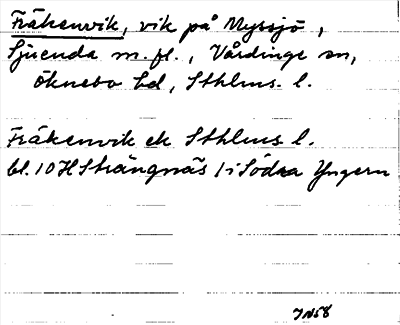 Fräkenvik, vik på Myssjö,
Sjuenda m.fl., Vårdinge sn,
Öknebo hd, Sthlms. l.
Fräkenvik ek Sthlms. l.
bl. 10H Strängnäs 1 i Södra Yngern